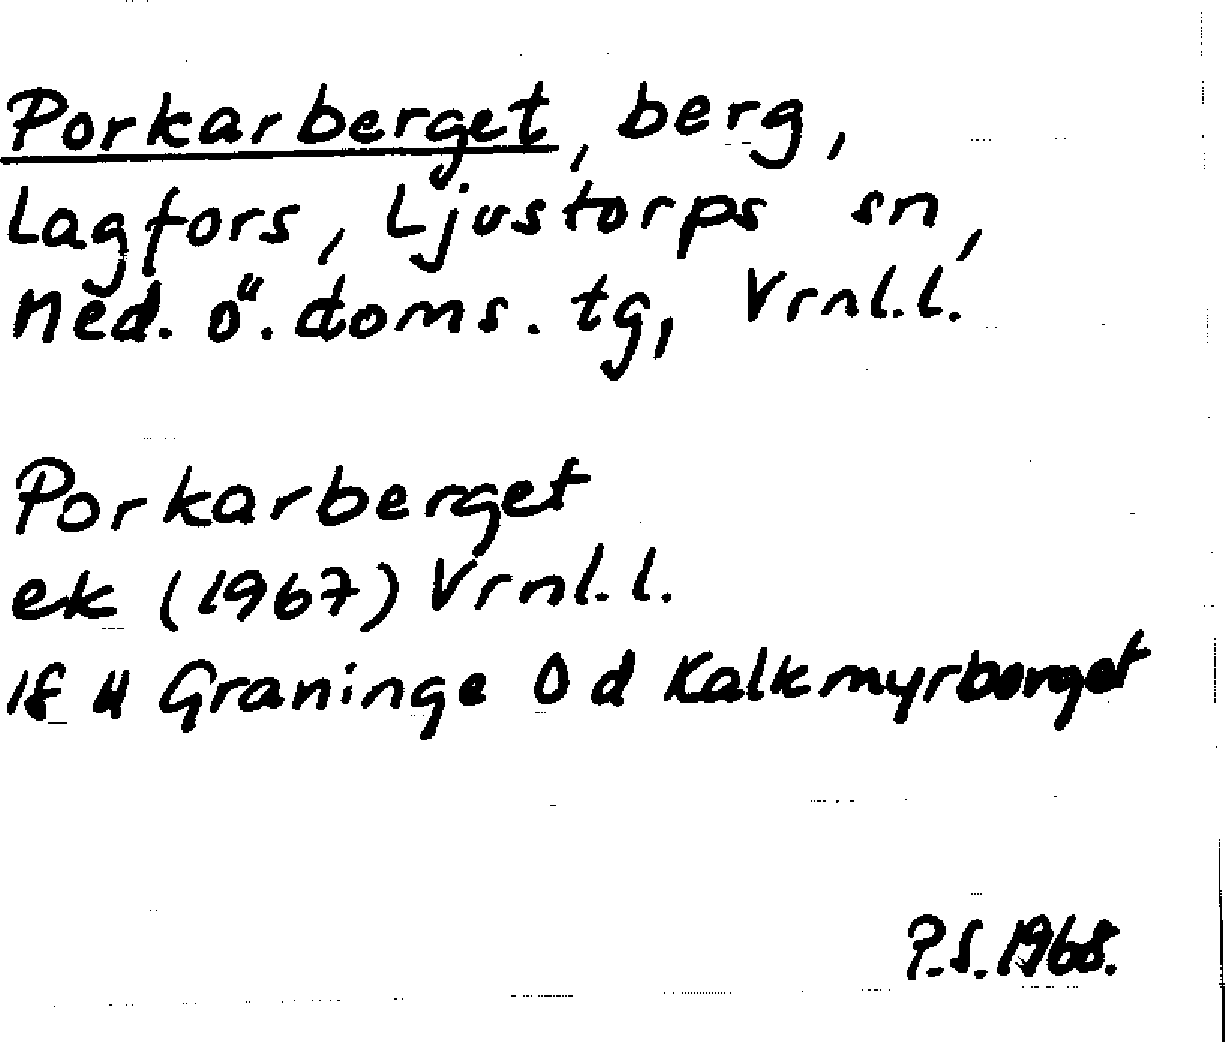 Porkarberget, berg,
Lagfors, Ljustorps sn,
Ned. ö. doms. tg, Vrnl.l.
Porkarberget
ek (1967) Vrnl.l.
18 H Graninge 0 d Kalkmyrberget
P.S. 1968.